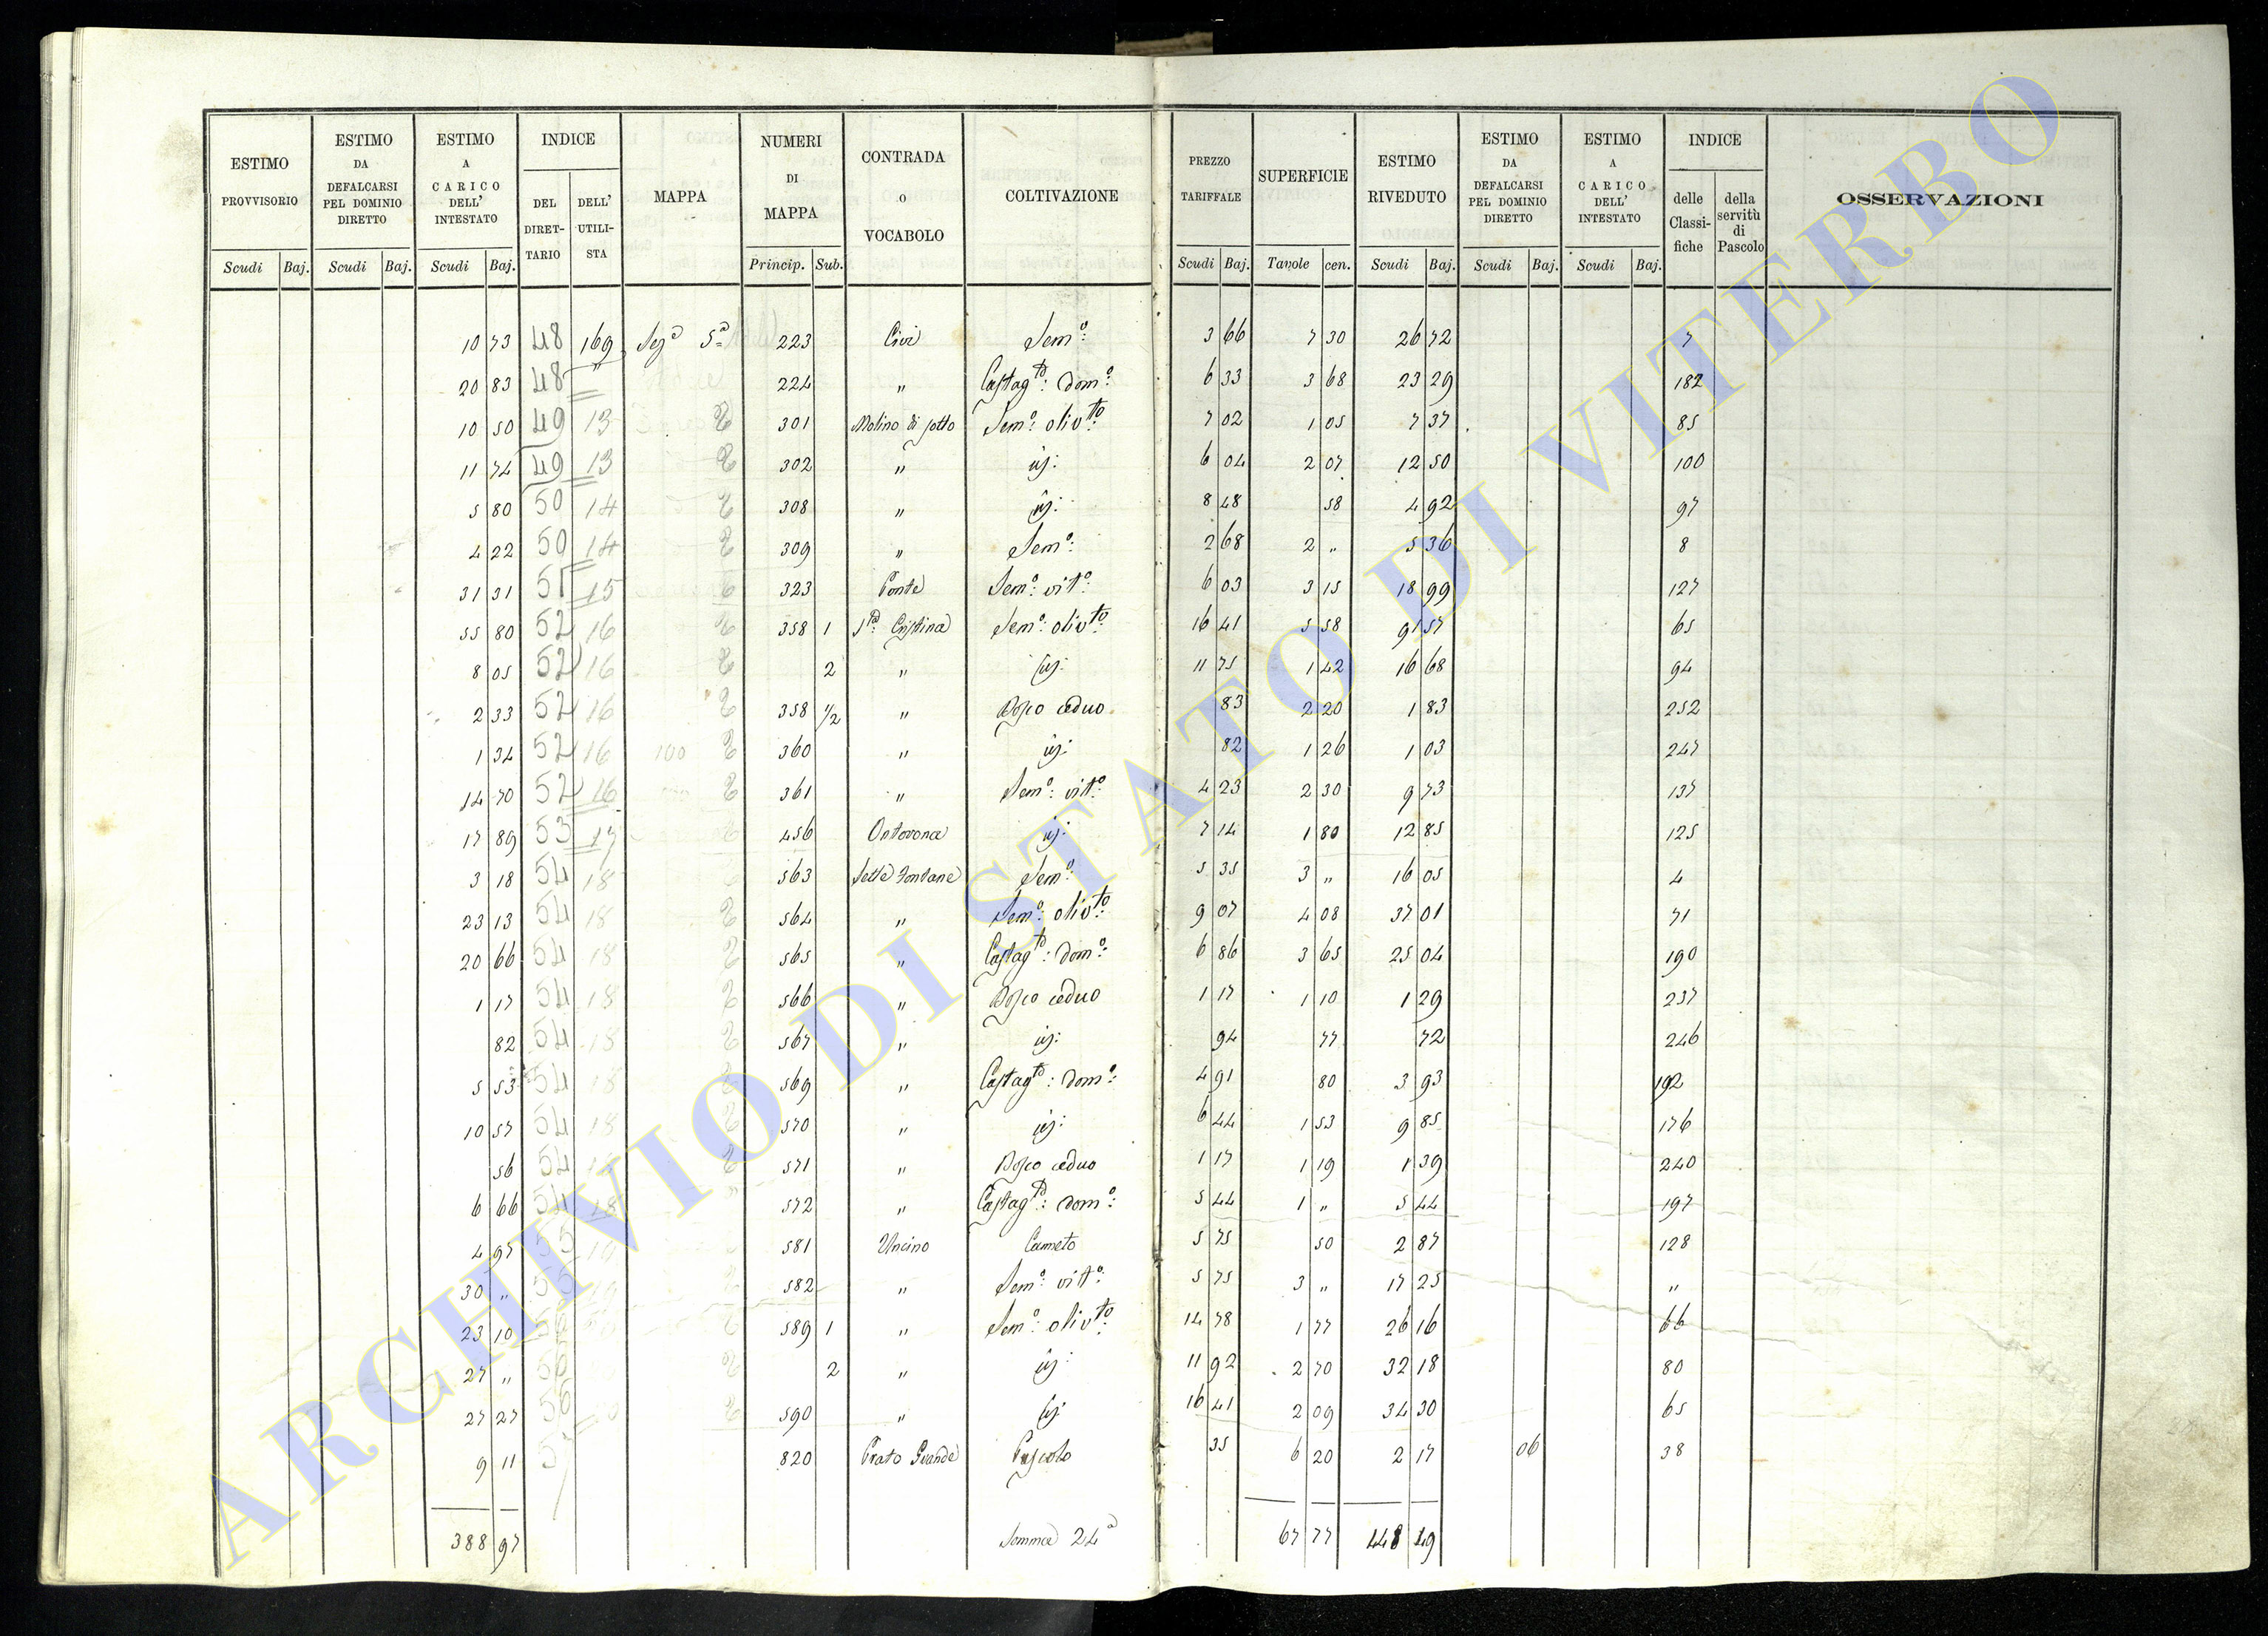 ESTIMO PROVVISORIO
ESTIMO DA DEFALCARSI PEL DOMINIO DIRETTO
ESTIMO A CARICO DELL' INTESTATO
INDICE
DEL DIRETTARIO DELL' UTILISTA
MAPPA
NUMERI DI MAPPA
CONTRADA O VOCABOLO
COLTIVAZIONE
PREZZO TARIFFALE
SUPERFICIE
ESTIMO RIVEDUTO
ESTIMO DA DEFALCARSI PEL DOMINIO DIRETTO
ESTIMO A CARICO DELL' INTESTATO
INDICE
delle Classifiche della servitù di Pascolo
OSSERVAZIONI
Scudi Baj. Scudi Baj. Scudi Baj. Princip. Sub. Scudi Baj. Tavole cen. Scudi Baj. Scudi Baj. Scudi Baj.
10 73 48 169 Sezª 5ª 223 Semº: 3 66 7 30 26 72 7
20 83 48 " 224 " Castagtº: domº: 6 33 3 68 23 29 182
10 50 49 13 301 Molino di sotto Semº: olivtº: 7 02 1 05 7 37 85
11 74 49 13 302 " 6 04 2 07 12 50 100
5 80 50 14 308 " 8 48 58 4 92 97
4 22 50 14 309 " Semº: 2 68 2 " 5 36 8
31 31 51 15 323 Ponte Semº: vitº: 6 03 3 15 18 99 127
55 80 52 16 358 1 Stª: Cristina Semº: olivtº: 16 41 5 58 91 57 65
8 05 52 16 2 " 11 75 1 42 16 68 94
2 33 52 16 358 1/2 " Bosco ceduo 83 2 20 1 83 252
1 34 52 16 100 360 " 82 1 26 1 03 247
14 70 52 16 361 " Semº: vitº: 4 23 2 30 9 73 137
17 89 53 17 456 Ontovona 7 14 1 80 12 85 125
3 18 54 18 563 Sette Fontane Semº: 5 35 3 " 16 05 4
23 13 54 18 564 " Semº: olivtº: 9 07 4 08 37 01 71
20 66 54 18 565 " Castagtº: domº: 6 86 3 65 25 04 190
1 17 54 18 566 " Bosco ceduo 1 17 1 10 1 29 237
82 54 18 567 " 94 77 72 246
5 53 54 18 569 " Castagtº: domº: 4 91 80 3 93 192
10 57 54 18 570 " 6 44 1 53 9 85 176
56 54 571 " Bosco ceduo 1 17 1 19 1 39 240
6 66 54 18 572 " Castagtº: domº: 5 44 1 " 5 44 197
4 97 55 581 Uncino Canneto 5 75 50 2 87 128
30 " 55 582 " Semº: vitº: 5 75 3 " 17 25 "
23 10 589 1 " Semº: olivtº: 14 78 1 77 26 16 66
27 " 56 2 " 11 92 2 70 32 18 80
27 27 56 590 " 16 41 2 09 34 30 65
9 11 820 Prato Grande Pascolo 35 6 20 2 17 06 38
388 97 Somma 24ª 67 77 448 49
ARCHIVIO DI STATO DI VITERBO